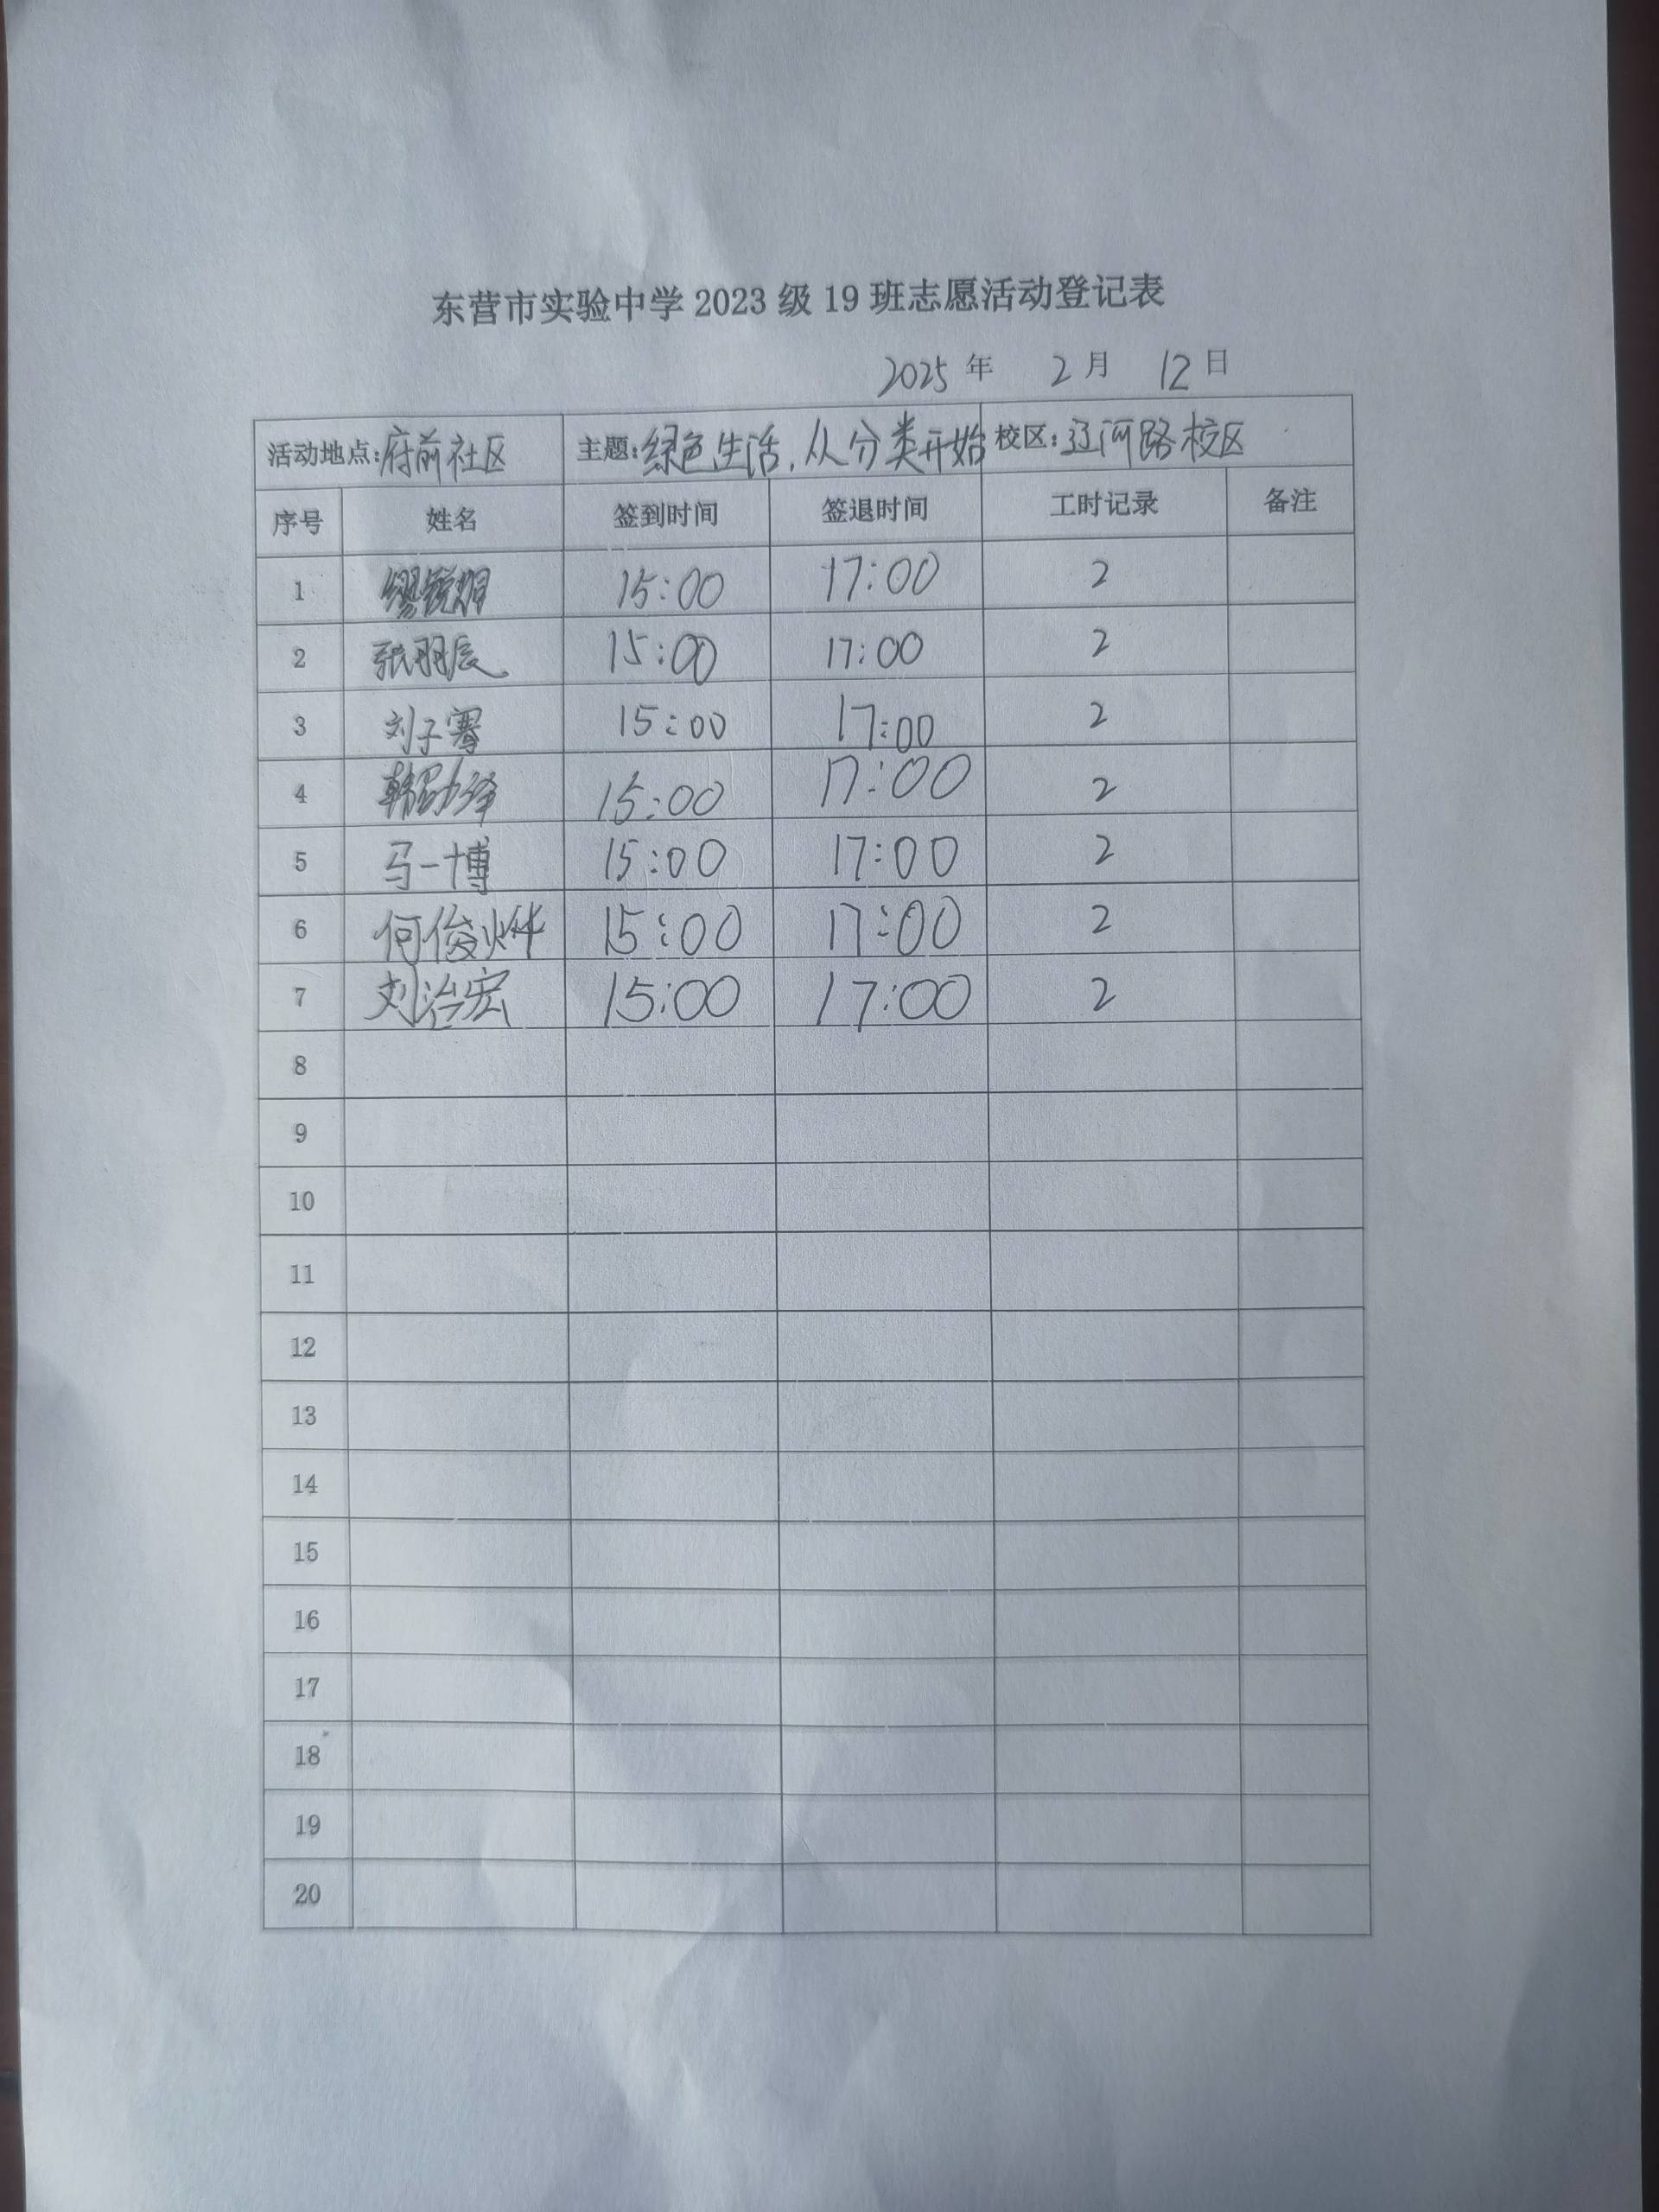 东营市实验中学2023级19班志愿活动登记表
2025年 2月 12日
活动地点:府前社区 主题:绿色生活,从分类开始 校区:辽河路校区
序号 姓名 签到时间 签退时间 工时记录 备注
1 15:00 17:00 2
2 张羽辰 15:00 17:00 2
3 刘子骞 15:00 17:00 2
4 韩勋泽 15:00 17:00 2
5 马一博 15:00 17:00 2
6 何俊烨 15:00 17:00 2
7 刘治宏 15:00 17:00 2
8
9
10
11
12
13
14
15
16
17
18
19
20